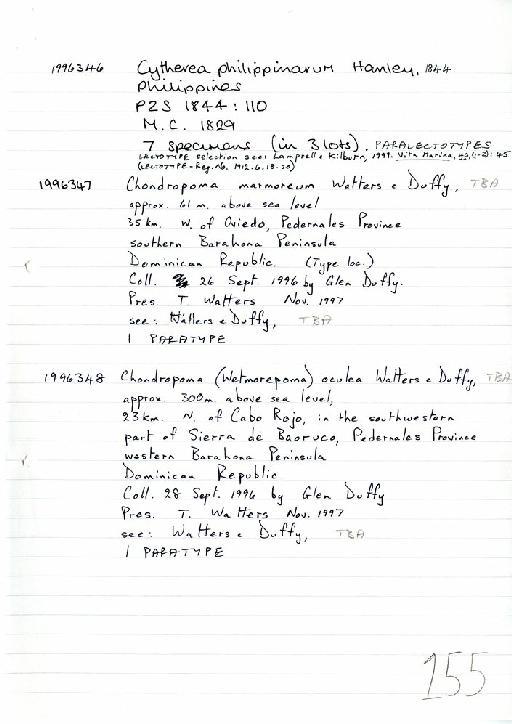 1996346 Cytherea philippinarum Hanley, 1844
Philippines
PZS 1844: 110
M.C. 1829
7 specimens (in 3 lots). PARALECTOTYPES
LECTOTYPE selection see: Lamprell & Kilburn, 1999. Vita Marina, 46(1-2): 45
(LECTOTYPE - Reg. No. 1912.6.18.20)
1996347 Chondropoma marmoreum Watters & Duffy, TBA
approx. 61 m. above sea level
35 km. W. of Oviedo, Pedernales Province
southern Barahona Peninsula
Dominican Republic. (Type loc.)
Coll. 26 Sept 1996 by Glen Duffy.
Pres T. Watters Nov. 1997
see: Watters & Duffy, TBA
1 PARATYPE
1996348 Chondropoma (Wetmorepoma) oculea Watters & Duffy, TBA
approx. 300m above sea level,
23 km. N. of Cabo Rojo, in the southwestern
part of Sierra de Baoruco, Pedernales Province
western Barahona Peninsula
Dominican Republic
Coll. 28 Sept. 1996 by Glen Duffy
Pres. T. Watters Nov. 1997
see: Watters & Duffy, TBA
1 PARATYPE
255